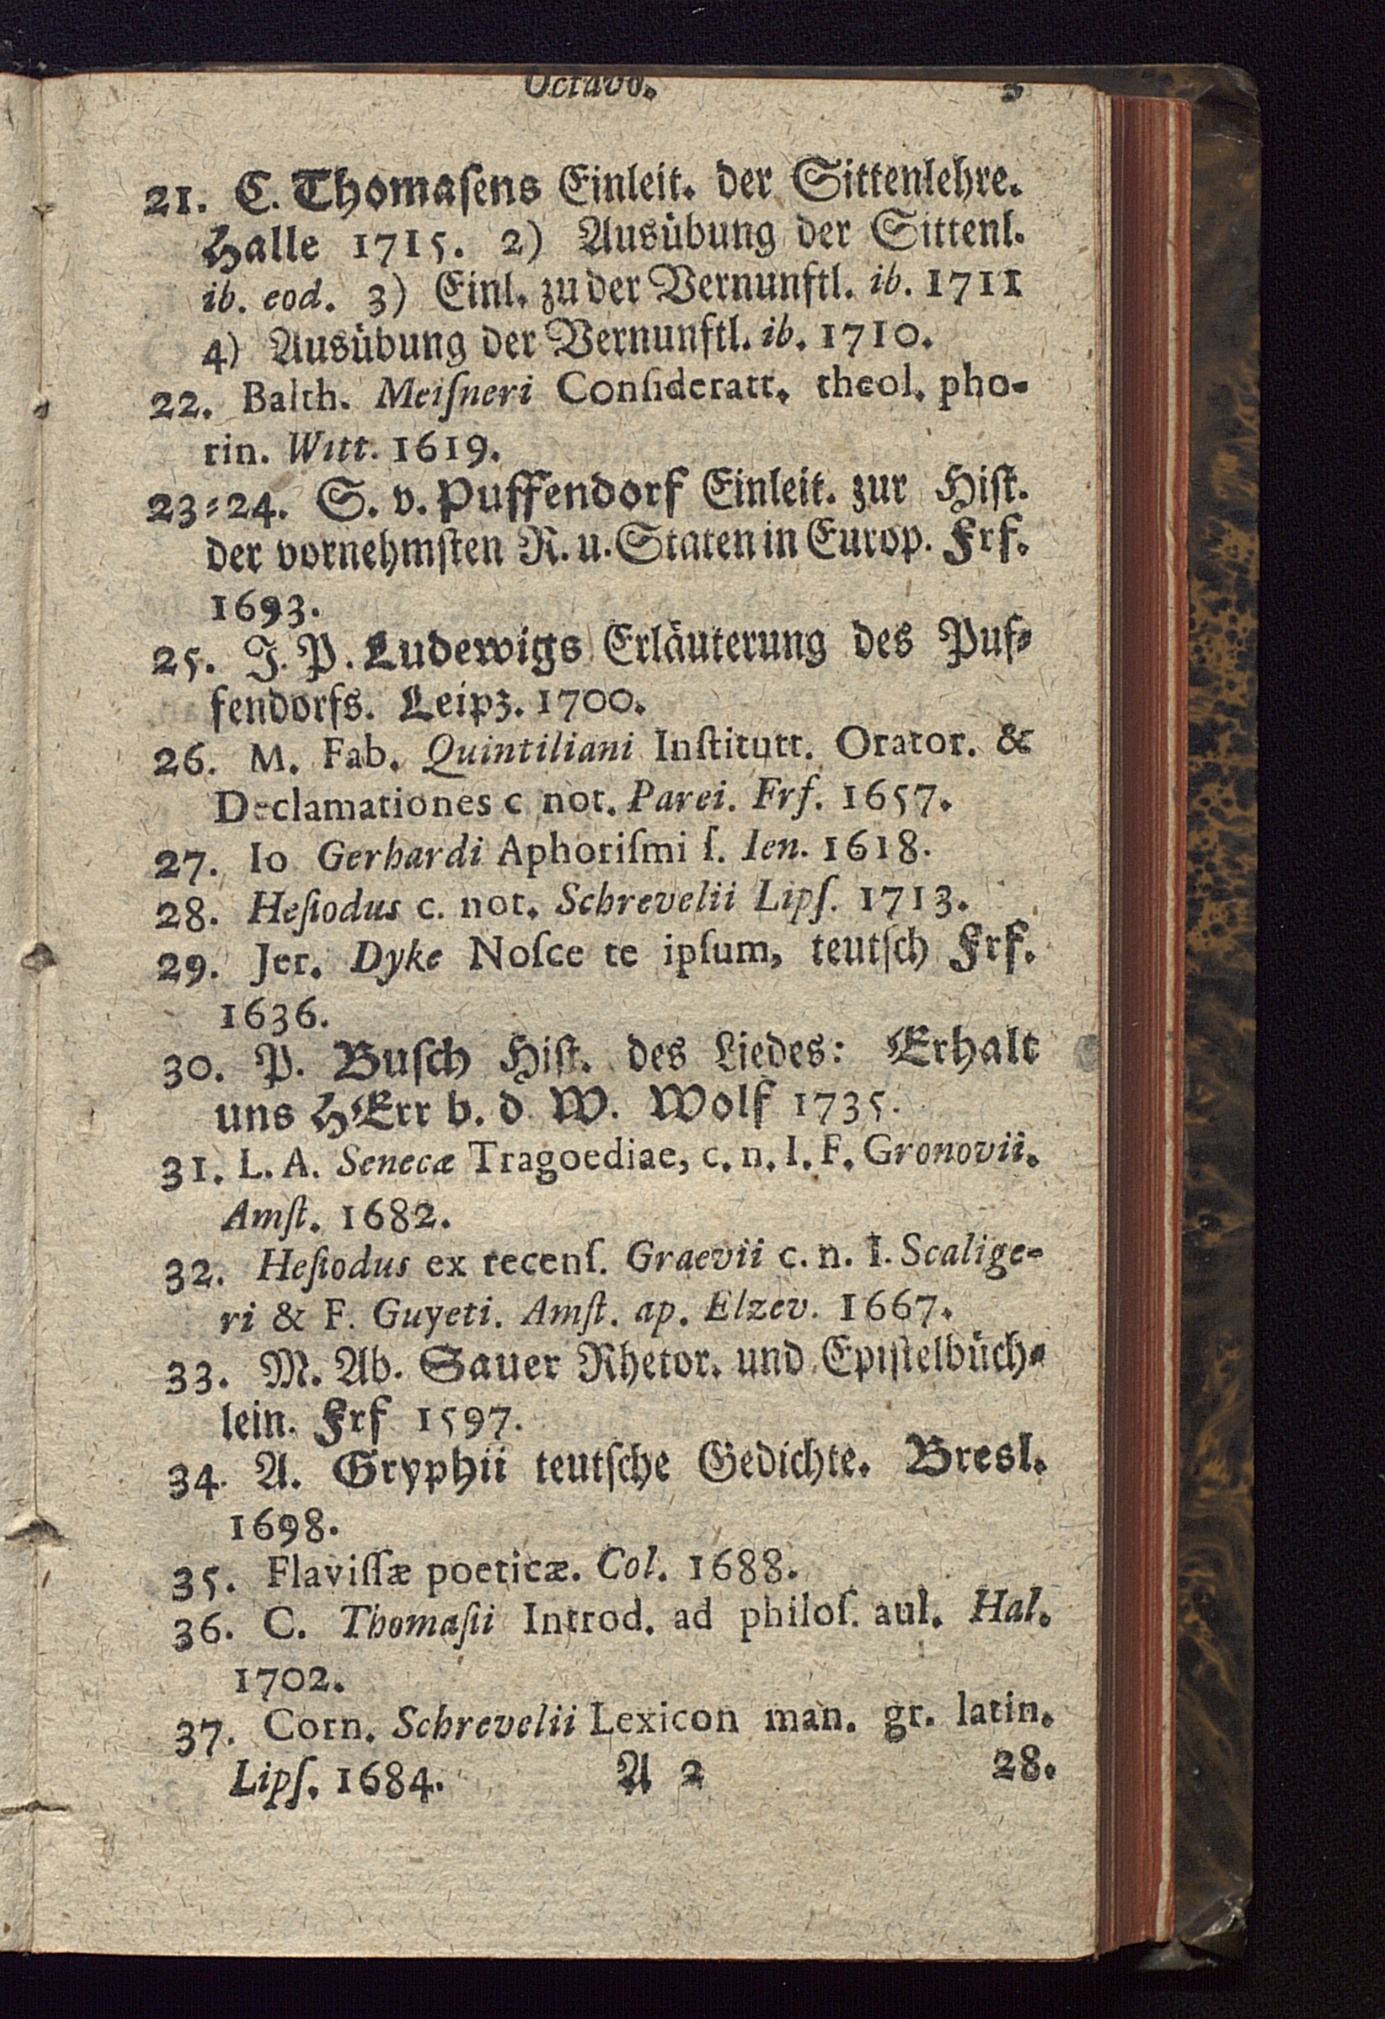 Octavo. 3
21. C. Thomaſens Einleit. der Sittenlehre.
Halle 1715. 2) Ausübung der Sittenl.
ib. eod. 3) Einl. zu der Vernunftl. ib. 1711
4) Ausübung der Vernunftl. ib. 1710.
22. Balth. Meiſneri Conſideratt. theol. pho-
tin. Witt. 1619.
23⸗24. S. v. Puffendorf Einleit. zur Hiſt.
der vornehmſten R. u. Staten in Europ. Frf.
1693.
25. J. P. Ludewigs Erläuterung des Puf⸗
fendorfs. Leipz. 1700.
26. M. Fab. Quintiliani Inſtitutt. Orator. &
Declamationes c not. Parei. Frf. 1657.
27. Io Gerhardi Aphoriſmi ſ. Ien. 1618.
28. Heſiodus c. not. Schrevelii Lipſ. 1713.
29. Jer. Dyke Noſce te ipſum, teutſch Frf.
1636.
30. P. Buſch Hiſt. des Liedes: Erhalt
uns HErr b. d. W. Wolf 1735.
31. L. A. Senecæ Tragoediae, c. n. I. F. Gronovii.
Amſt. 1682.
32. Heſiodus ex recenſ. Graevii c. n. I. Scalige-
ri & F. Guyeti. Amſt. ap. Elzev. 1667.
33. M. Ab. Sauer Rhetor. und Epiſtelbüch⸗
lein. Frf 1597.
34. A. Gryphii teutſche Gedichte. Bresl.
1698.
35. Flaviſſæ poeticæ. Col. 1688.
36. C. Thomaſii Introd. ad philoſ. aul. Hal.
1702.
37. Corn. Schrevelii Lexicon man. gr. latin.
Lipſ. 1684. A 2 28.